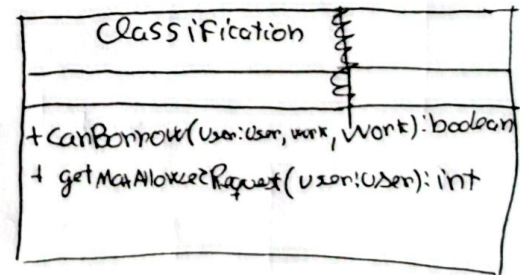 Classification
+ canBorrow(user:User, work, Work):boolean
+ getMaxAllowedRequest(user:User):int